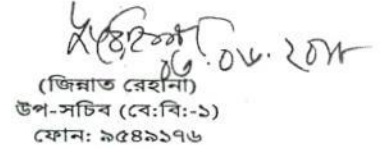 ০৬.০৬.২০১৮
(জিন্নাত রেহানা)
উপ-সচিব (বে:বি:-১)
ফোন: ৯৫৪৯১৭৬